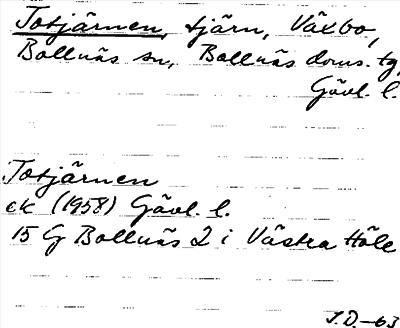 Tosjärnen, tjärn, Växbo,
Bollnäs sn, Bollnäs doms. tg,
Gävl. l.
Tosjärnen
ek (1958) Gävl. l.
15 G Bollnäs 2 i Västra Höle
J.D.-63